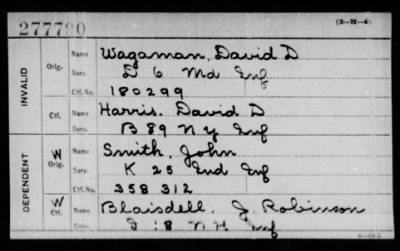 277790
(3-H-4)
INVALID
Orig.
Name Wagaman, David D
Serv. D 6 Md Inf
Ctf. No. 180299
Ctf.
Name Harris, David D
Serv. B 89 N Y Inf
DEPENDENT
W
Orig.
Name Smith, John
Serv. K 25 Ind Inf
Ctf. No. 358 312
W
Ctf.
Name Blaisdell, J. Robinson
Serv. 18 N H Inf